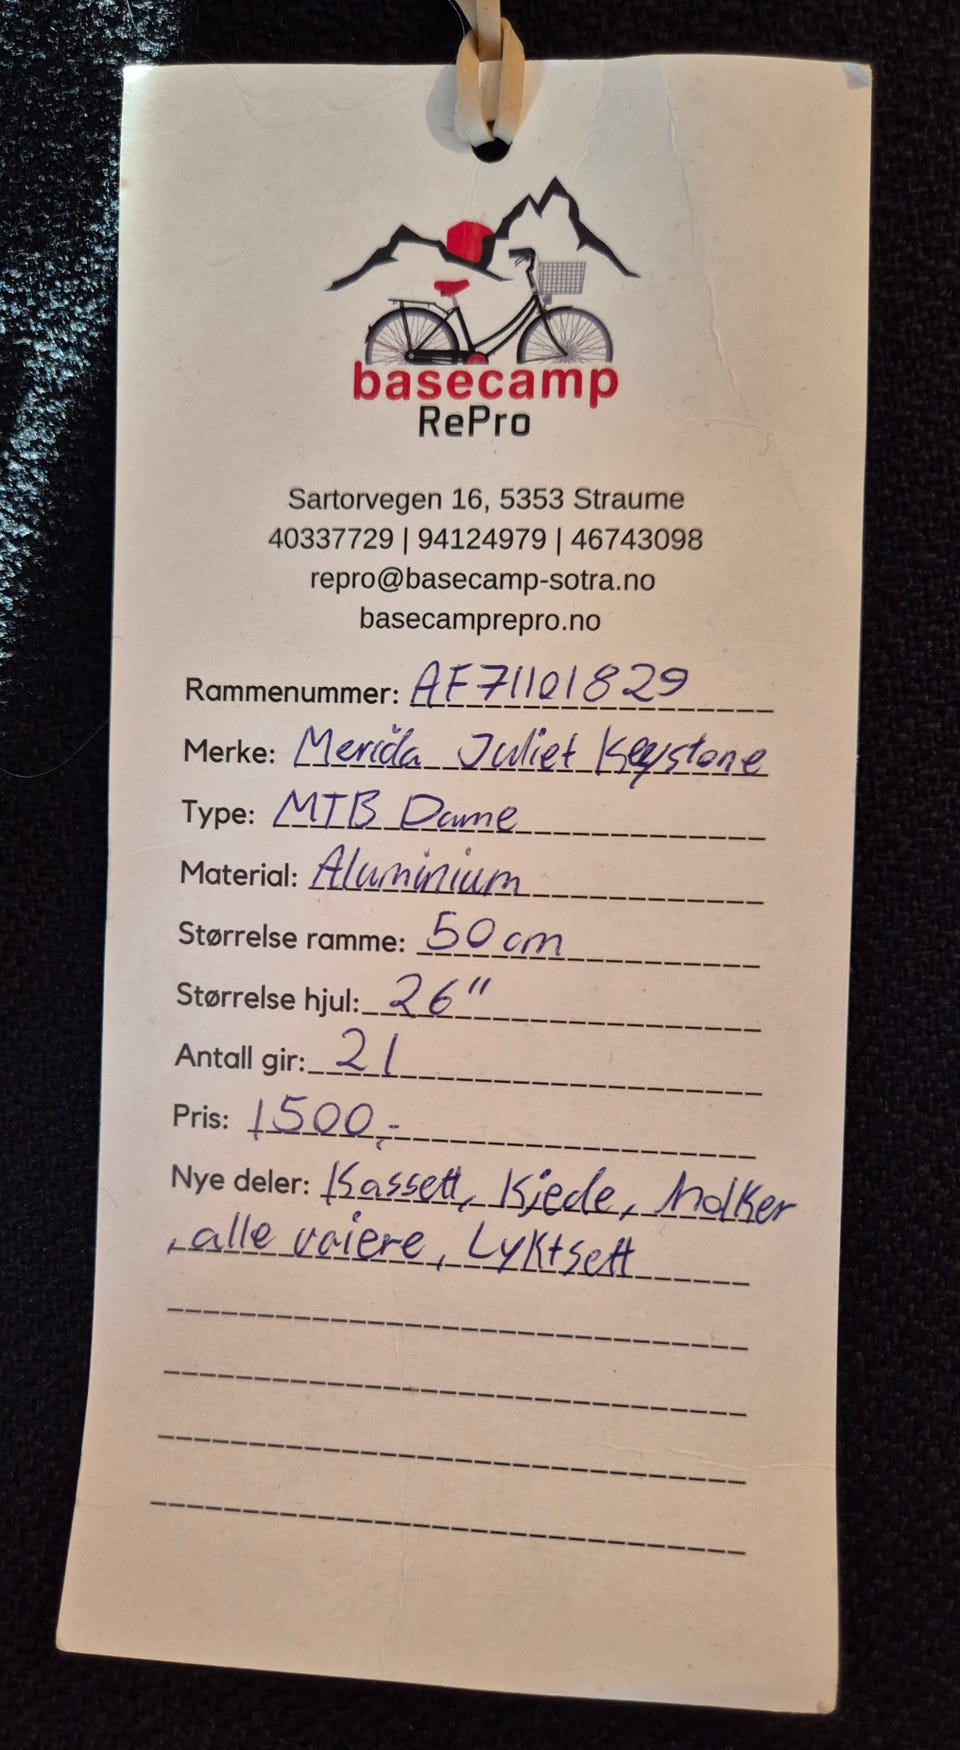 basecamp
RePro
Sartorvegen 16, 5353 Straume
40337729 | 94124979 | 46743098
repro@basecamp-sotra.no
basecamprepro.no
Rammenummer: AF71101829
Merke: Merida Juliet Keystone
Type: MTB Dame
Material: Aluminium
Størrelse ramme: 50 cm
Størrelse hjul: 26"
Antall gir: 21
Pris: 1500,-
Nye deler: Kassett, Kjede,
, alle vaiere, Lyktsett